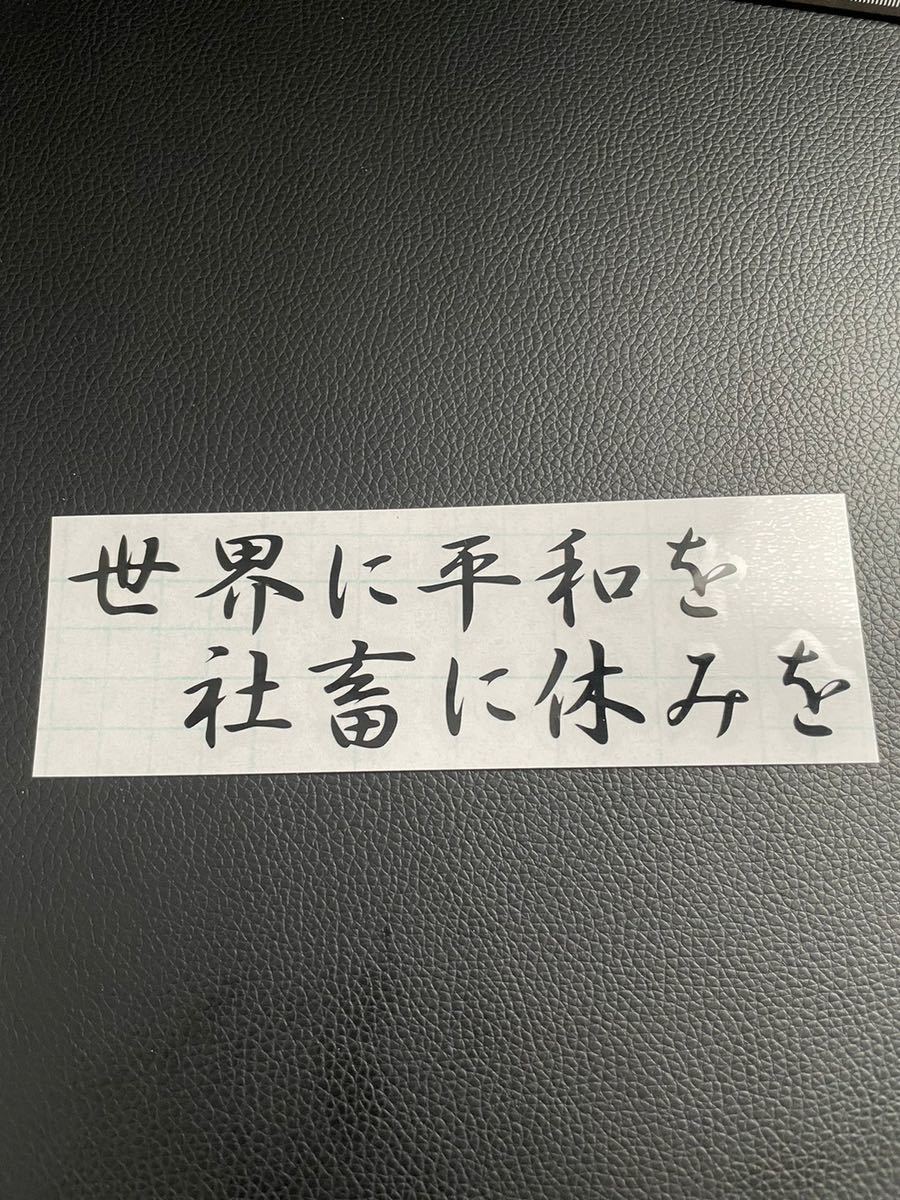 世界に平和を
社畜に休みを